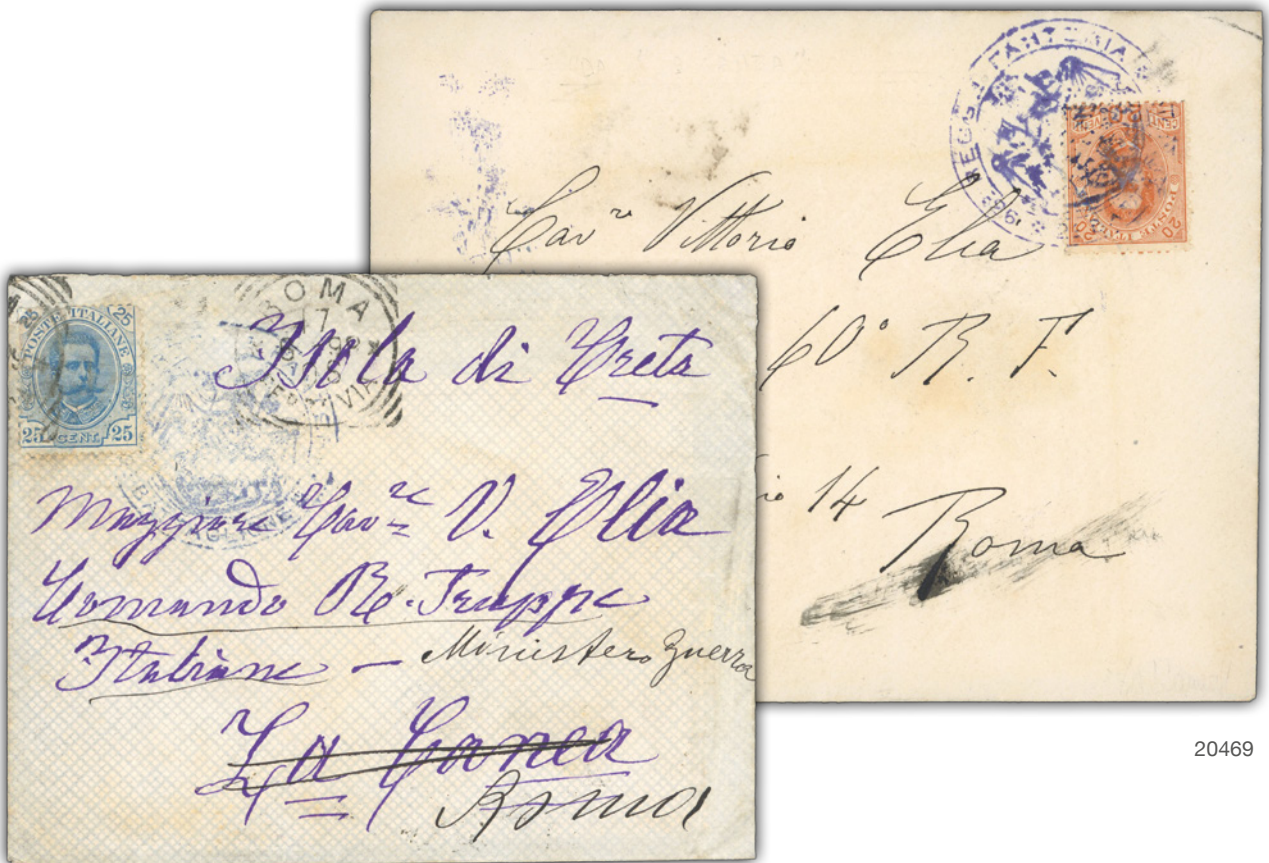 Cav.re Vittorio Elia
60° R. F.
14
Roma
20
20
25 POSTE ITALIANE 25
25 CENT. 25
ROMA
17
Isola di Creta
Maggiore Cav.re V. Elia
Comando R. Truppe
Italiane — Ministero Guerra
La Canea
Roma
20469